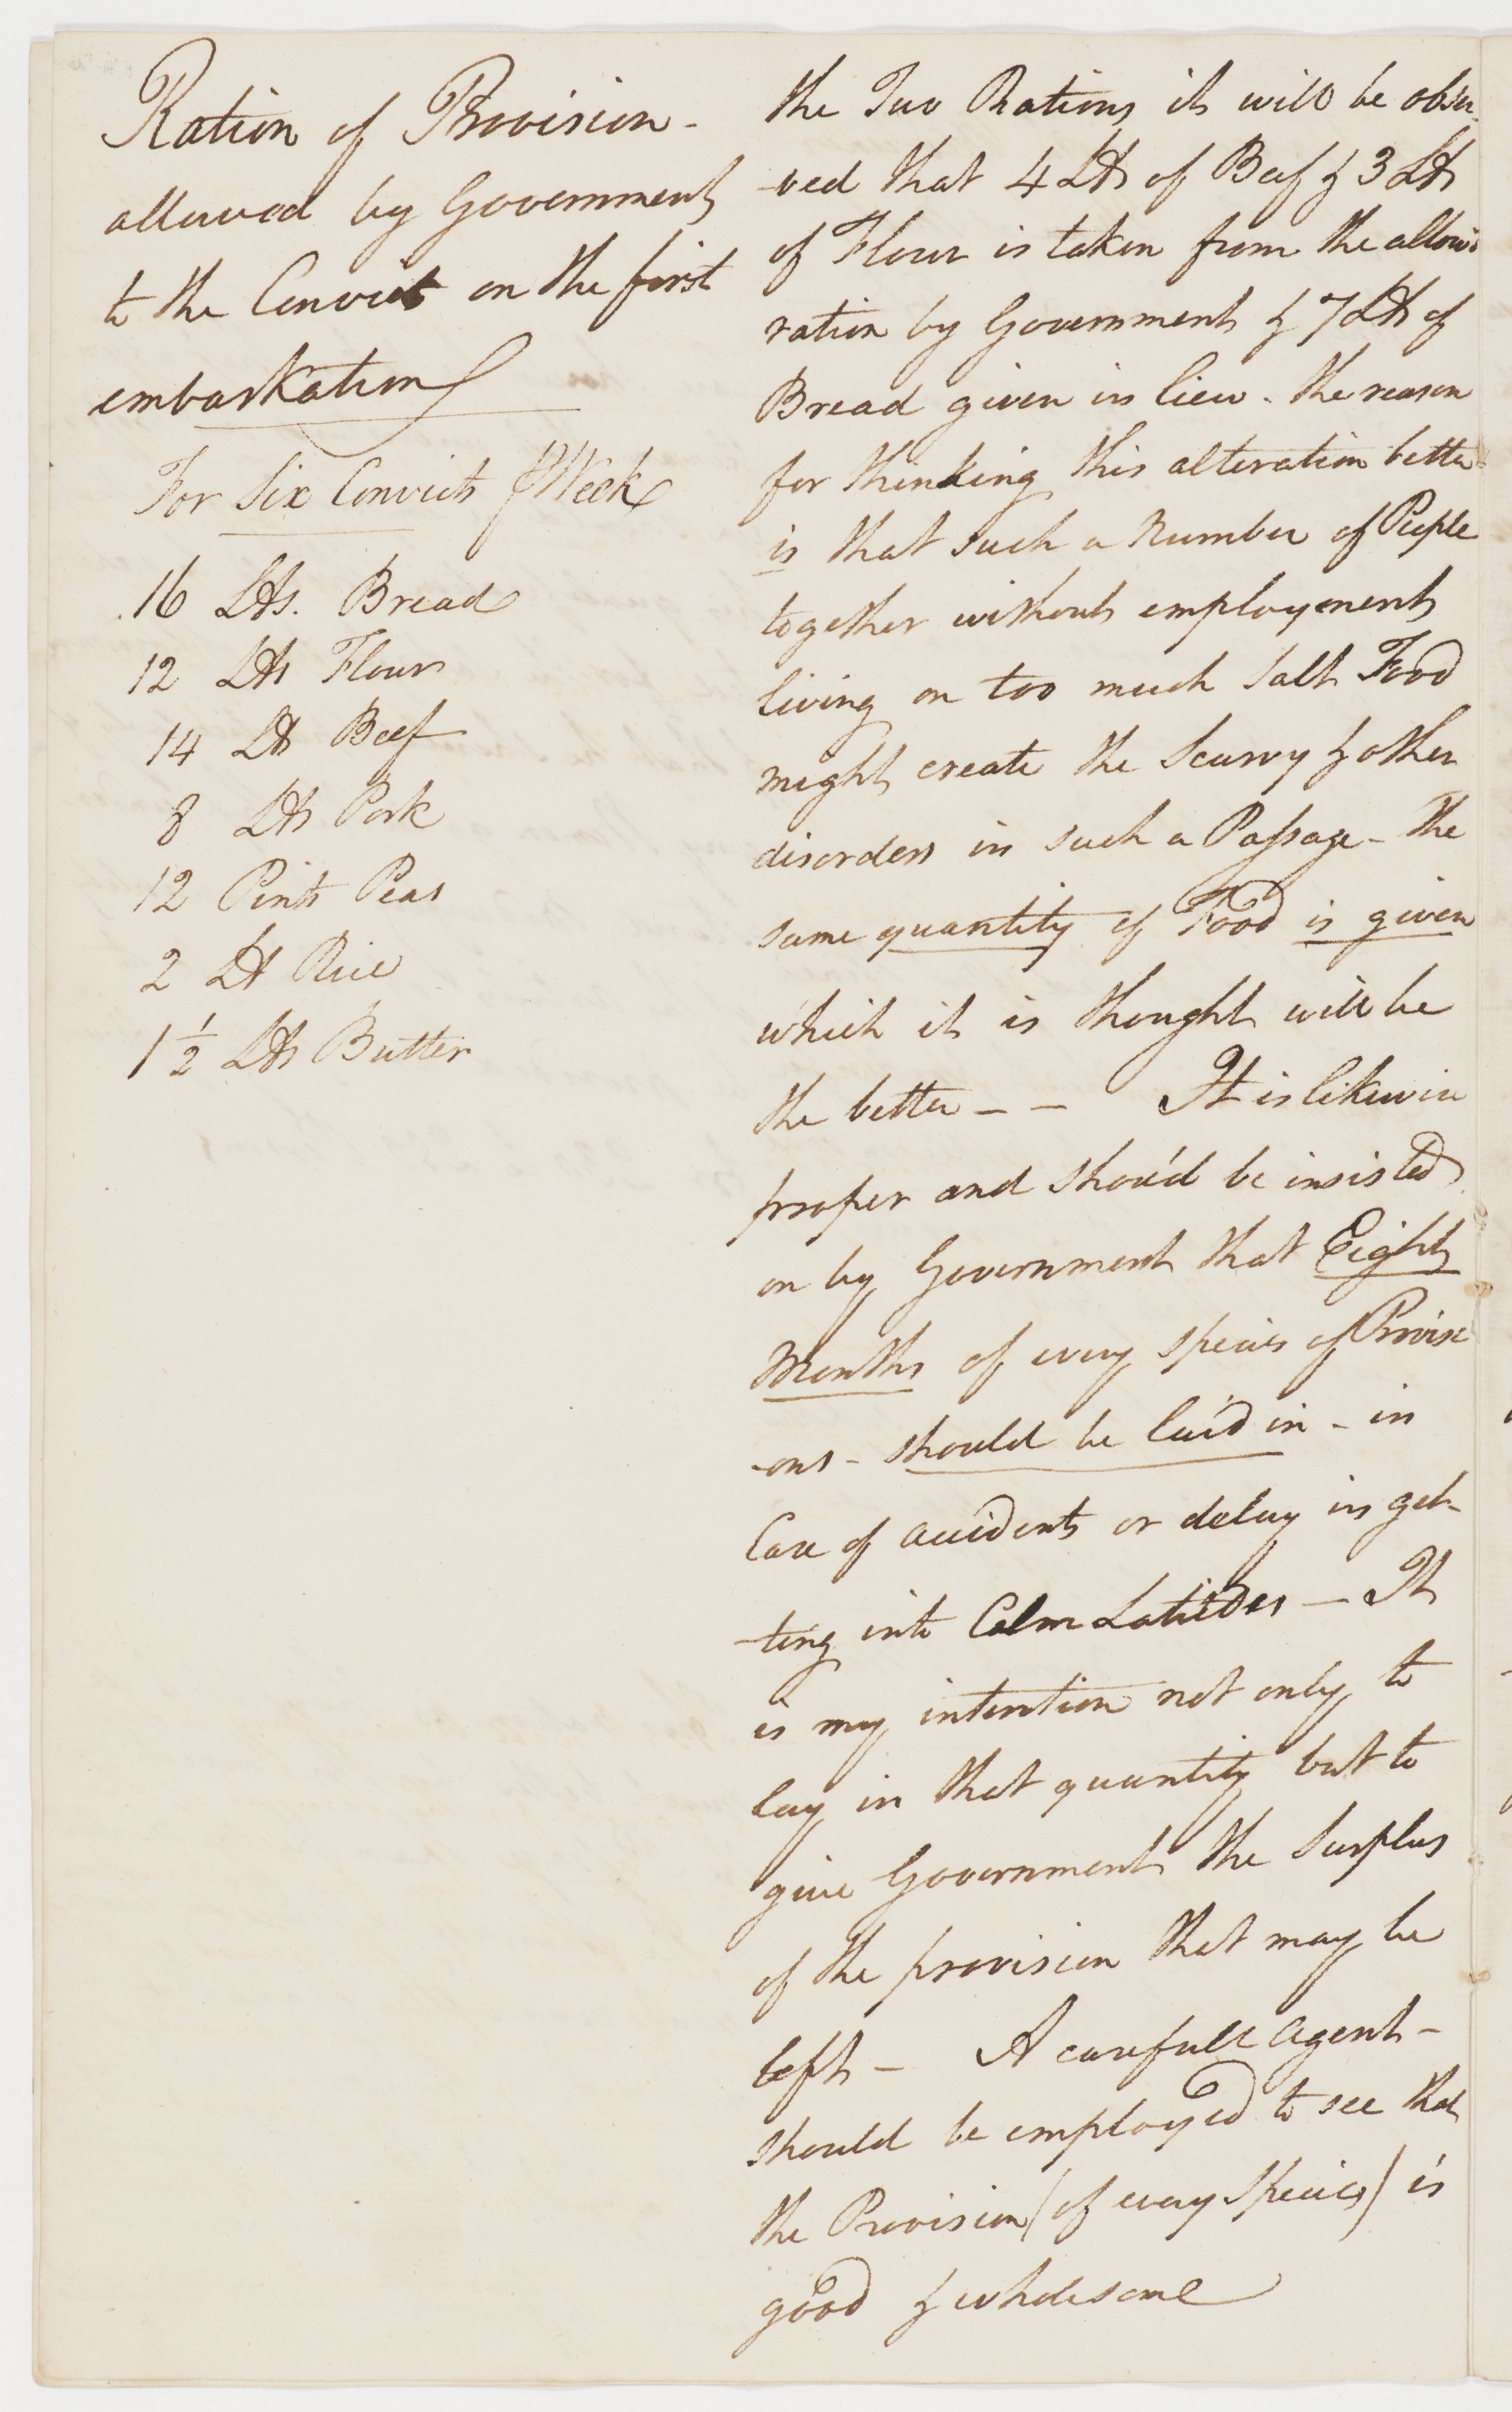 Ration of Provision -
allowed by Government
to the Convict on the first
embarkation
For Six Convicts ⅌ Week
16 Lbs. Bread
12 Lbs Flour
14 Lb Beef
8 Lbs Pork
12 Pints Peas
2 Lb Rice
1 1/2 Lbs Butter
the Two Rations it will be obser
-ved that 4 Lbs of Beef & 3 Lbs
of Flour is taken from the allow'd
ration by Government & 7 Lbs of
Bread given in lieu - the reason
for thinking this alteration better
is that such a Number of People
together without employment
living on too much Salt Food
might create the Scurvy & other
disorders in such a Passage - The
same quantity of Food is given
which it is thought will be
the better - - It is likewise
proper and shou'd be insisted
on by Government that Eight
Months of every species of Provisi
-ons - should be laid in - in
Case of accidents or delay in get-
-ting into Calm Latitudes - It
is my intention not only to
lay in that quantity but to
give Government the Surplus
of the provision that may be
left - A carefull Agent -
should be employed to see that
the Provision (of every Species) is
good & wholesome